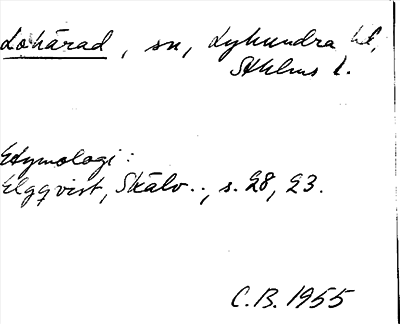 Lohärad, sn, Lyhundra hd,
Sthlms l.
Etymologi:
Elgqvist, Skälv.., s. 28, 23.
C.B. 1955